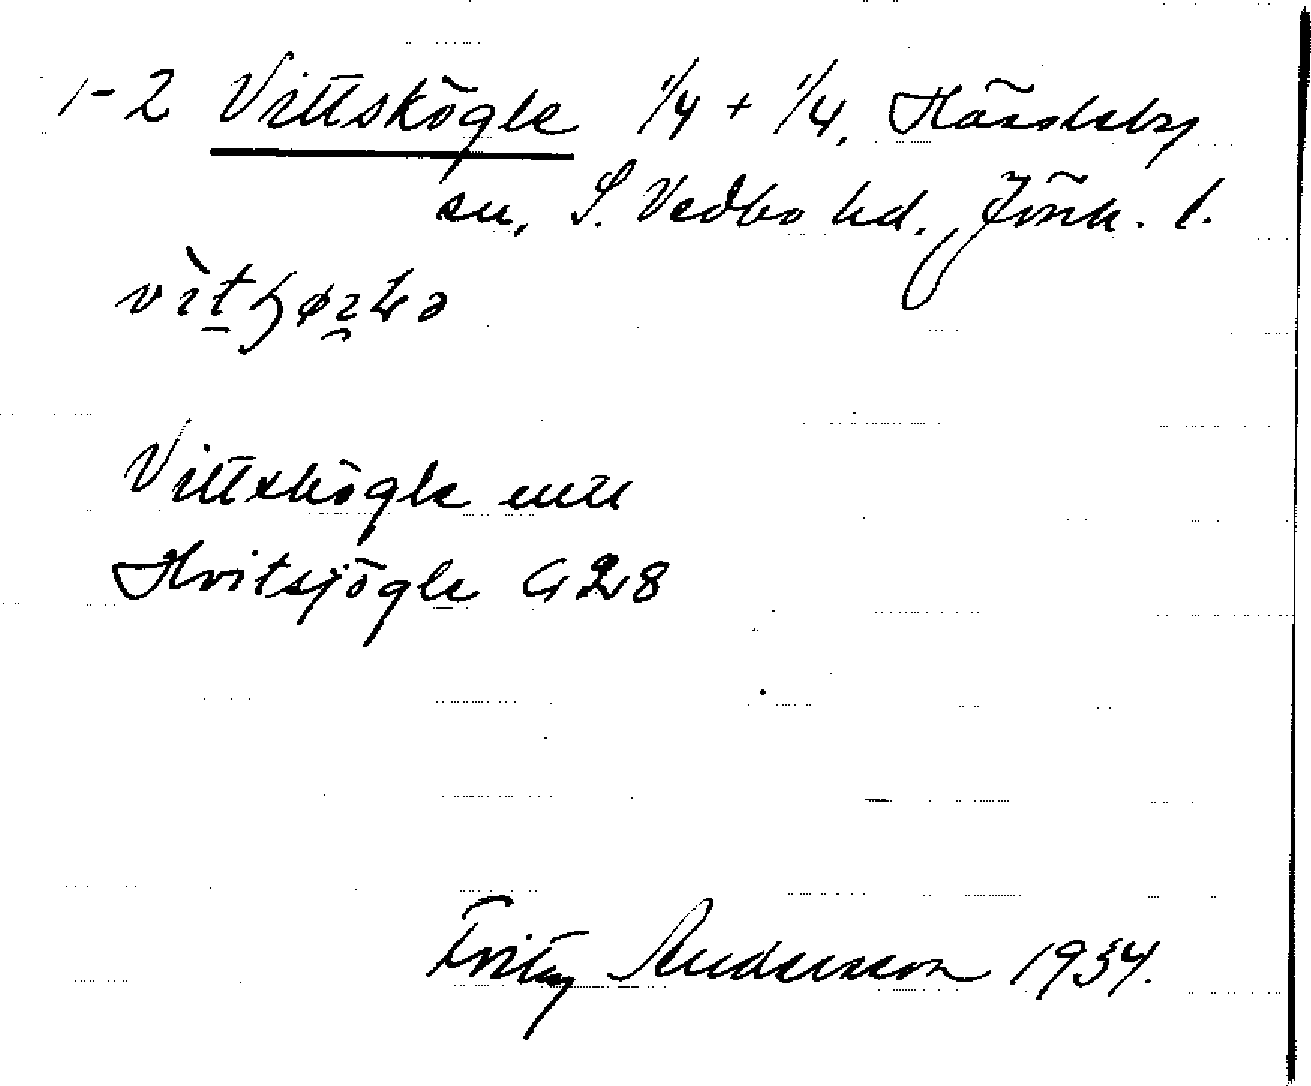 1-2 Vittskögle 1/4 + 1/4, Hässleby
sn, S. Vedbo hd. Jönk. l.
Vittskögle mtl
Hvitsjögle G 28
Fritz Andersson 1934.